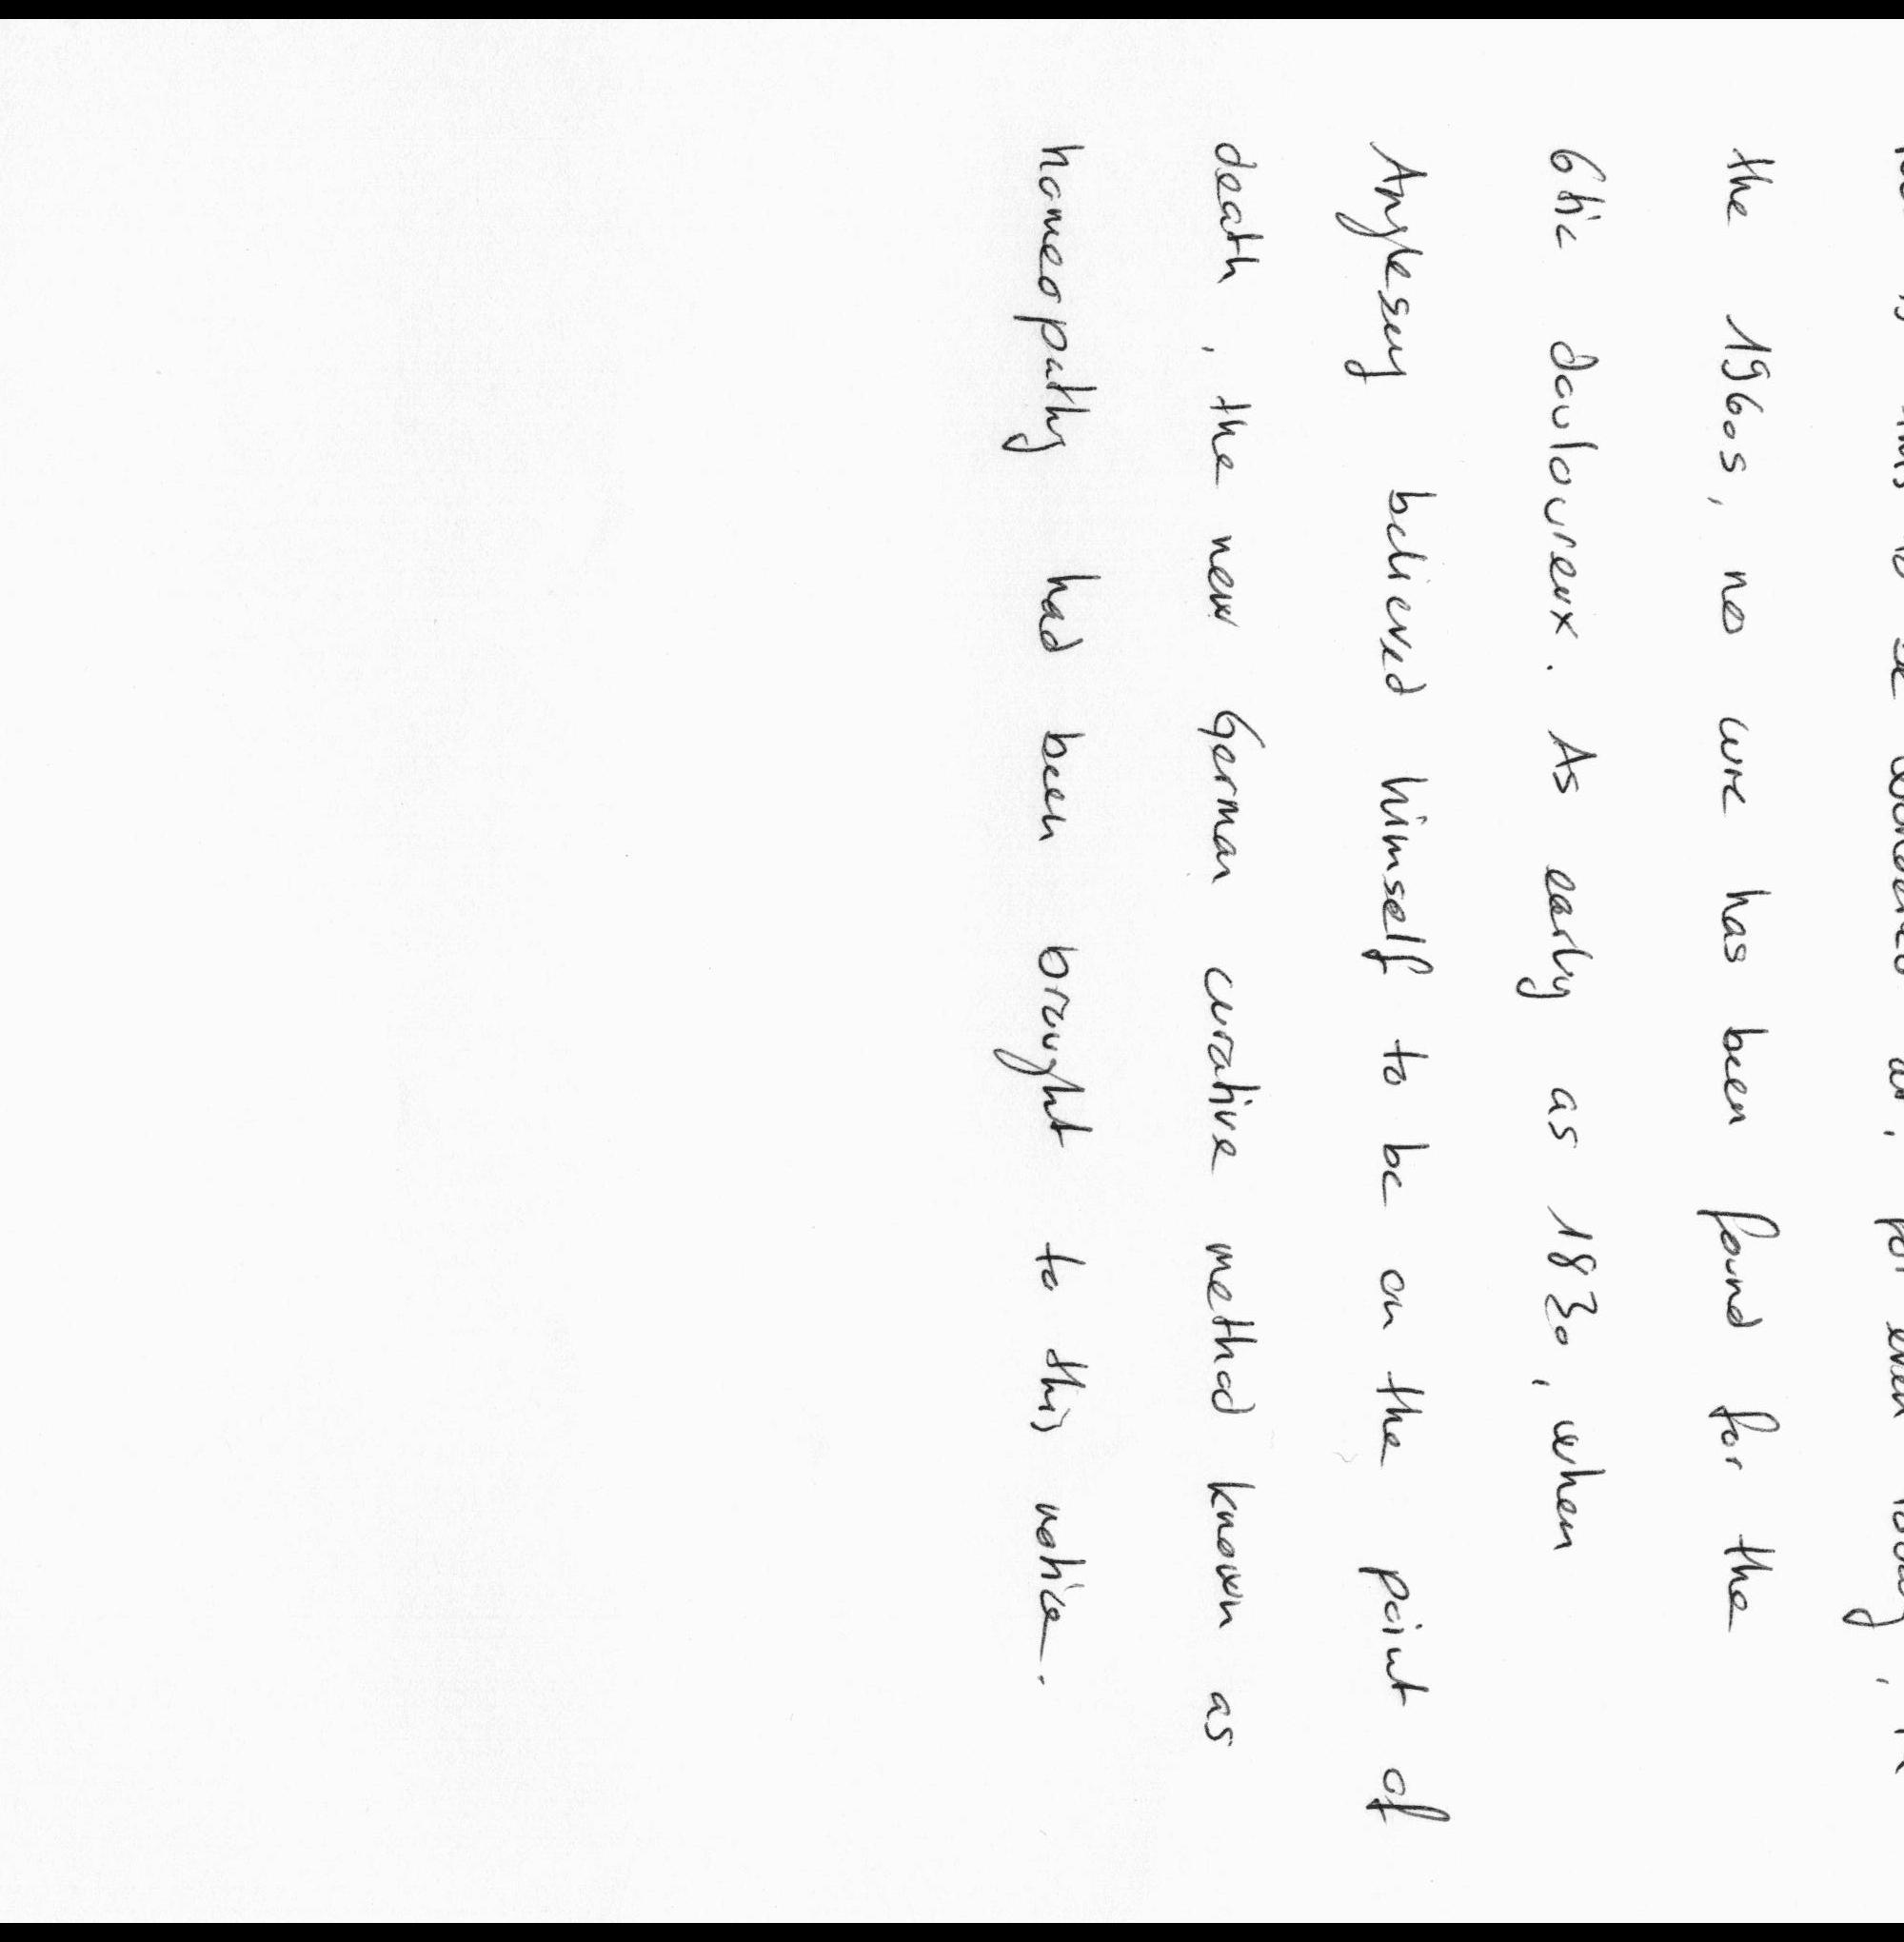 is this to be wondered at, for even today, in
the 1960s, no cure has been found for the
6tic douloureux. As early as 1830, when
Anglesey believed himself to be on the point of
death, the new German curative method known as
homeopathy had been brought to this notice.